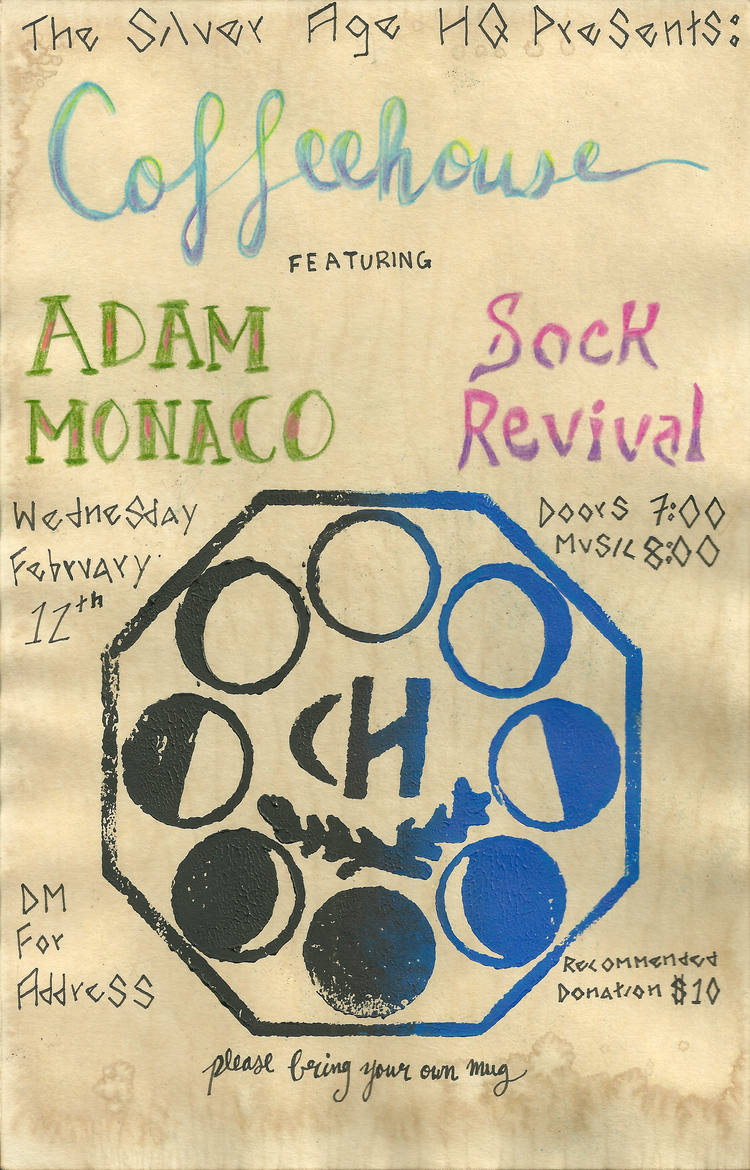 The Silver Age HQ Presents:
Coffeehouse
FEATURING
ADAM
MONACO
Sock
Revival
Wednesday
February
12th
Doors 7:00
Music 8:00
CH
DM
For
Address
Recommended
Donation $10
please bring your own mug